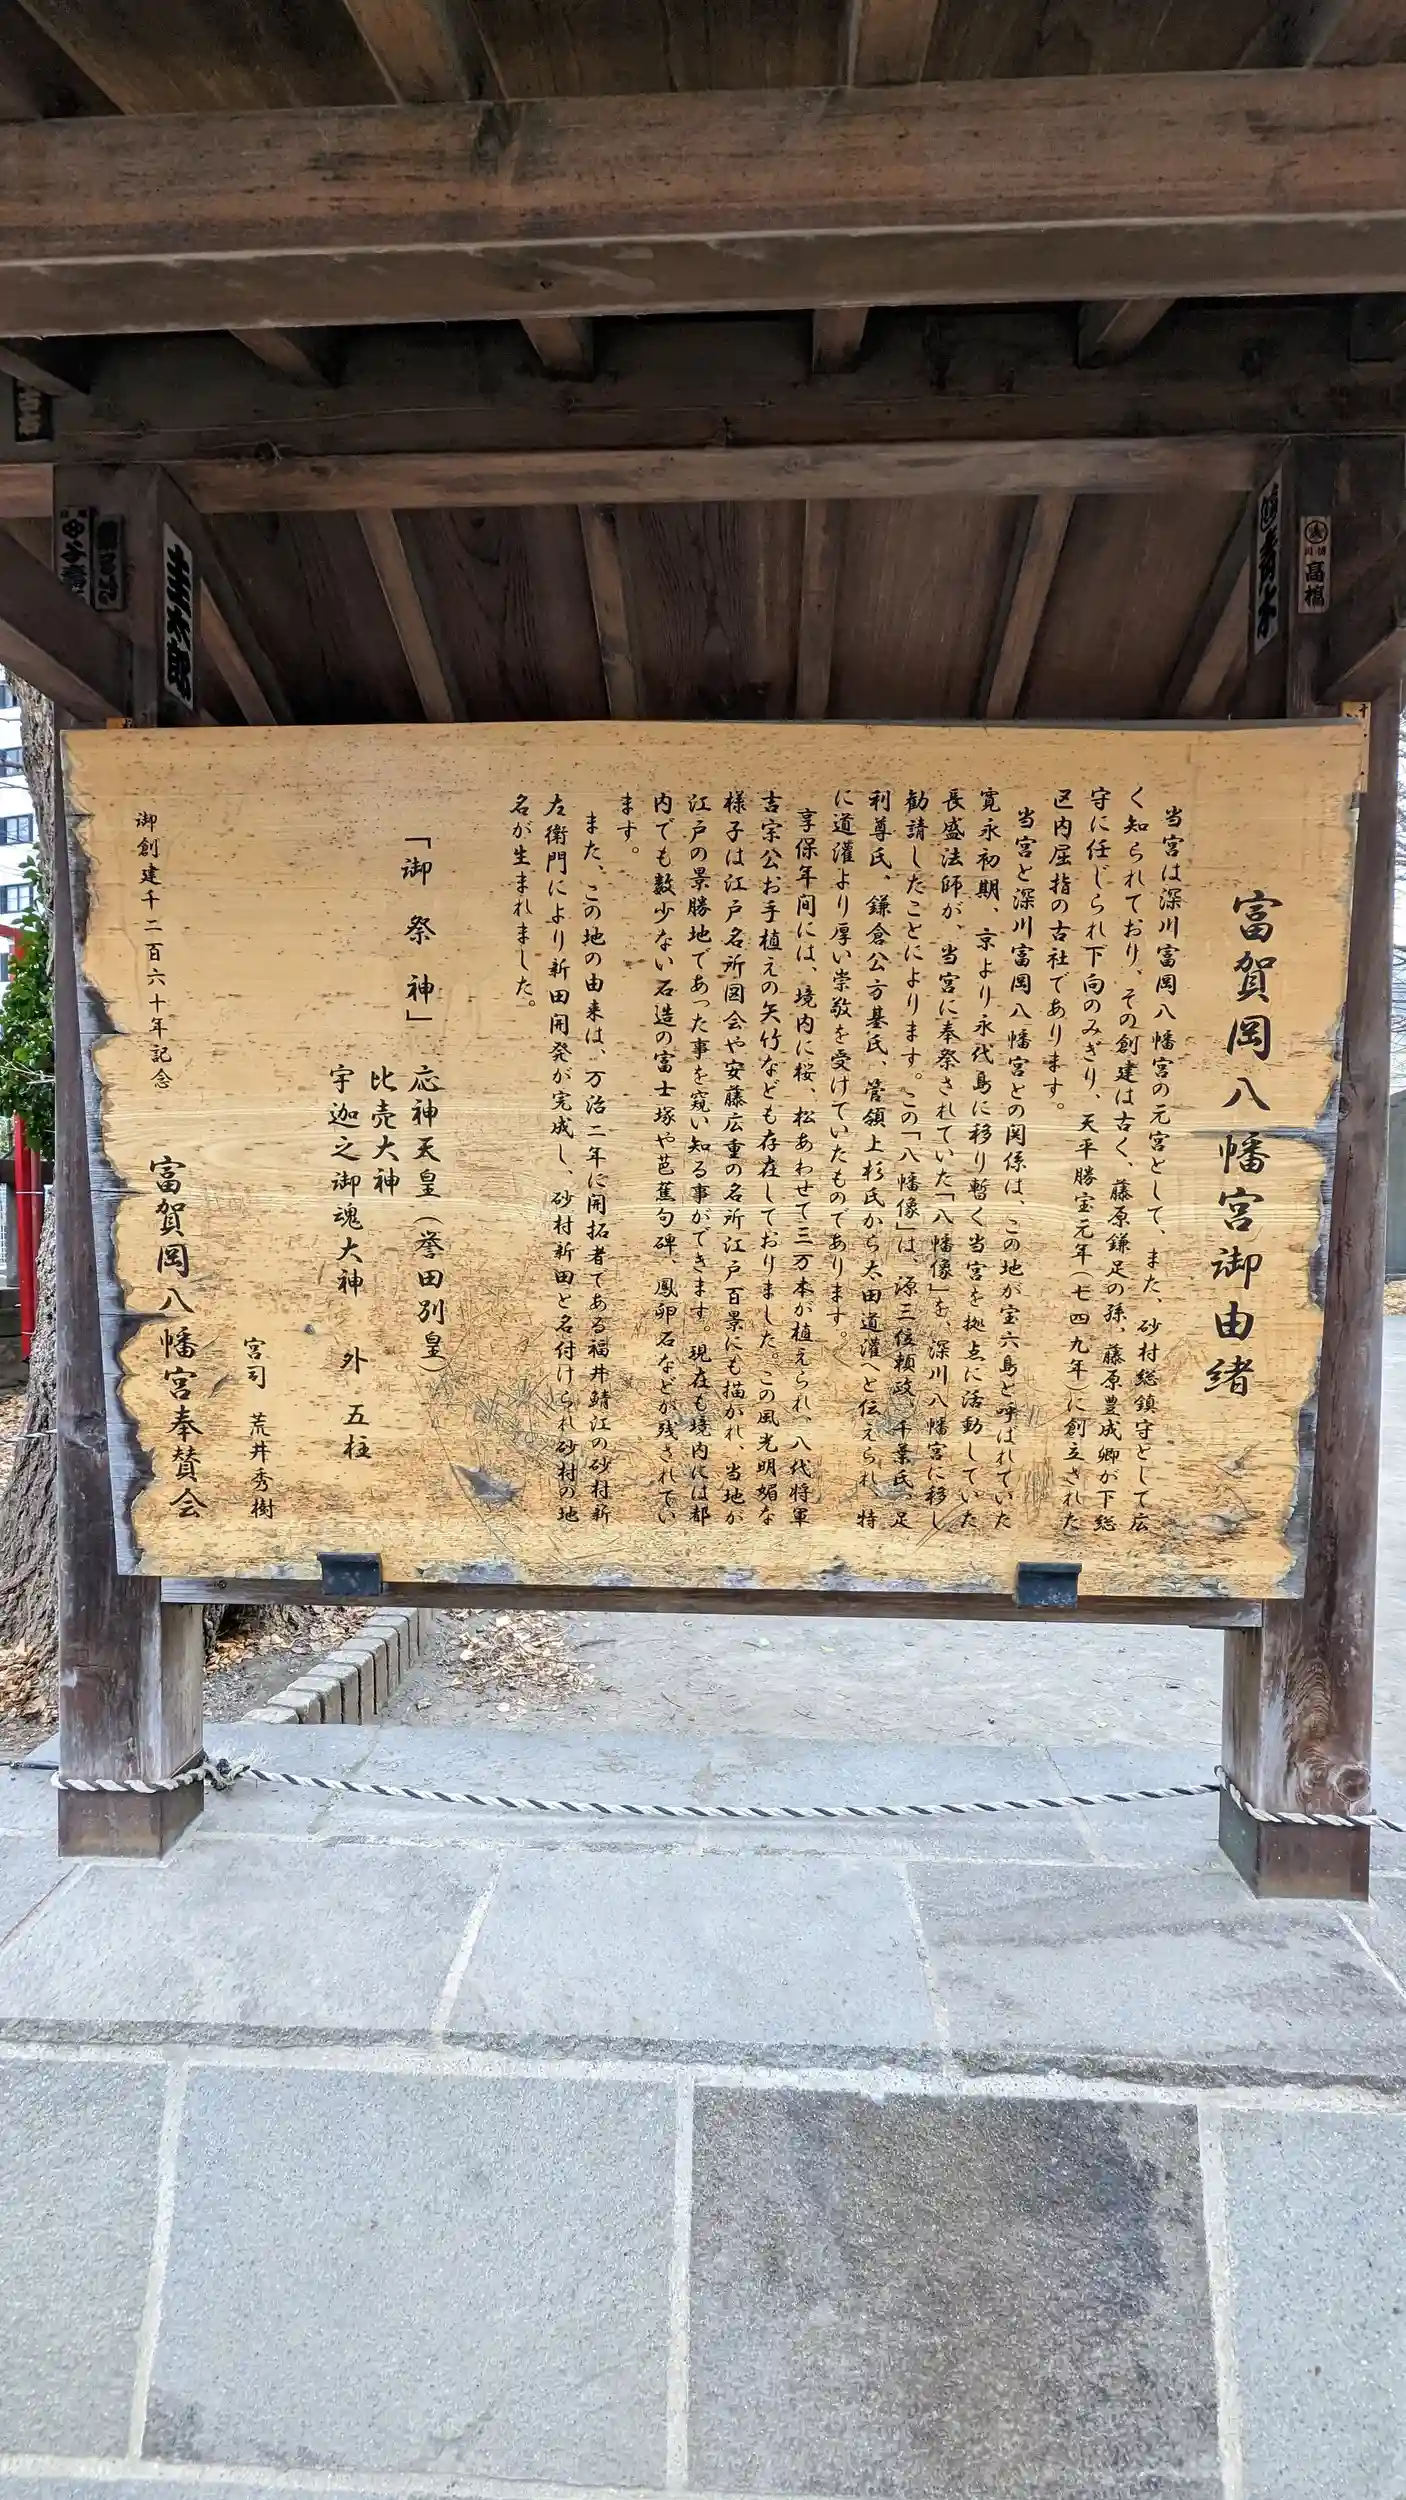 富賀岡八幡宮御由緒
当宮は深川富岡八幡宮の元宮として、また、砂村総鎮守として広
く知られており、その創建は古く、藤原鎌足の孫、藤原豊成卿が下総
守に任じられ下向のみぎり、天平勝宝元年(七四九年)に創立された
区内屈指の古社であります。
当宮と深川富岡八幡宮との関係は、この地が宝六島と呼ばれていた
寛永初期、京より永代島に移り暫く当宮を拠点に活動していた
長盛法師が、当宮に奉祭されていた「八幡像」を、深川八幡宮に移し
勧請したことによります。この「八幡像」は、源三位頼政、千葉氏、足
利尊氏、鎌倉公方基氏、管領上杉氏から太田道灌へと伝えられ、特
に道灌より厚い崇敬を受けていたものであります。
享保年间には、境内に桜、松あわせて三万本が植えられ、八代将軍
吉宗公お手植えの矢竹なども存在しておりました。この風光明媚な
様子は江戸名所図会や安藤広重の名所江戸百景にも描かれ、当地が
江戸の景勝地であった事を窺い知る事ができます。現在も境内には都
内でも数少ない石造の富士塚や芭蕉句碑、鳳卵石などが残されてい
ます。
また、この地の由来は、万治二年に開拓者である福井鯖江の砂村新
左衛門により新田開発が完成し、砂村新田と名付けられ砂村の地
名が生まれました。
「御祭神」
応神天皇(誉田別皇)
比売大神
宇迦之御魂大神 外 五柱
宮司 荒井秀樹
富賀岡八幡宮奉賛会
御創建千二百六十年記念
圭太郎
高橋